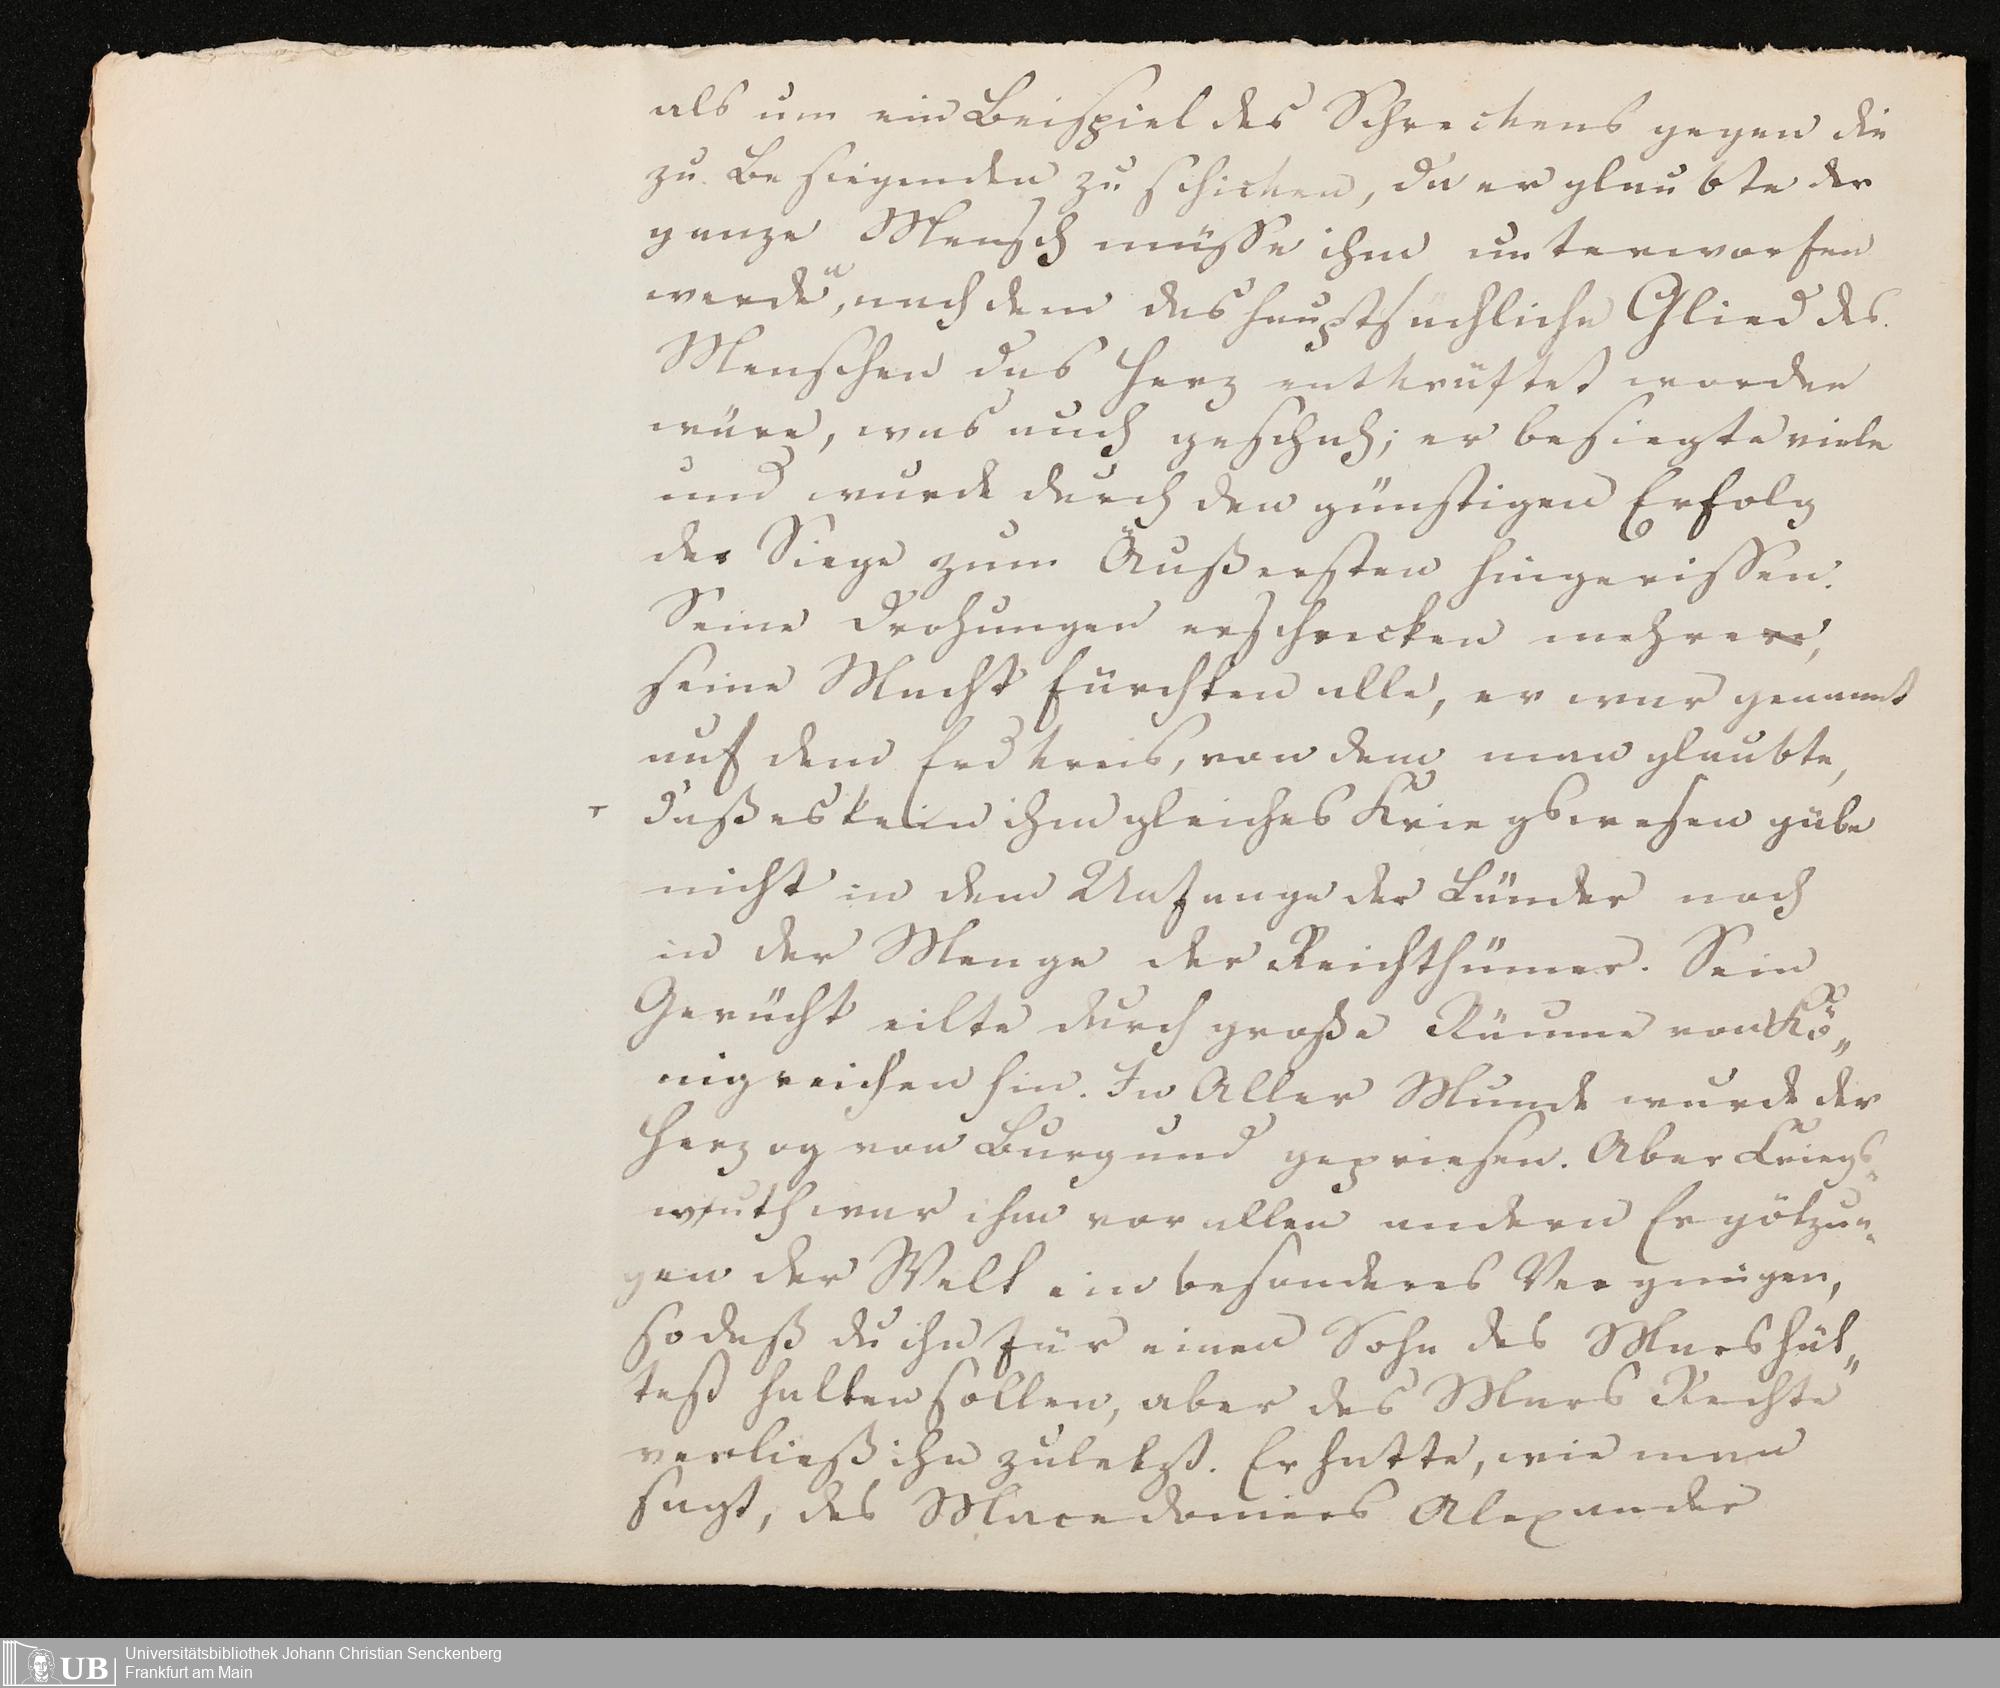 als um ein Beispiel des Schreckens gegen die
zu Besiegenden zu schicken, da er glaubte der
ganze Mensch müsse ihm unterworfen
werden, nachdem das hauptsächliche Glied des
Menschen das Herz entkräftet worden
wäre, was auch geschah; er besiegte viele
und wurde durch den günstigen Erfolg
der Siege zum Äußersten hingerissen.
Seine Drohungen erschrecken mehrere,
seine Macht fürchten alle, er war genannt
auf dem Erdkreis, von dem man glaubte,
daß es kein ihm gleiches Kriegswesen gäbe
nicht in dem Umfange der Länder noch
in der Menge der Reichthümer. Sein
Gerücht eilte durch große Räume von Kö„
nigreichen hin. In Aller Munde wurde der
Herzog von Burgund gepriesen. Aber Kriegs„
wuth war ihm vor allen andern Ergötzun„
gen der Welt ein besonderes Vergnügen,
so daß du ihn für einen Sohn des Mars hät„
test halten sollen, aber des Mars Rechte
verließ ihn zuletzt. Er hatte, wie man
sagt, des Macedoniers Alexander
UB
Universitätsbibliothek Johann Christian Senckenberg
Frankfurt am Main